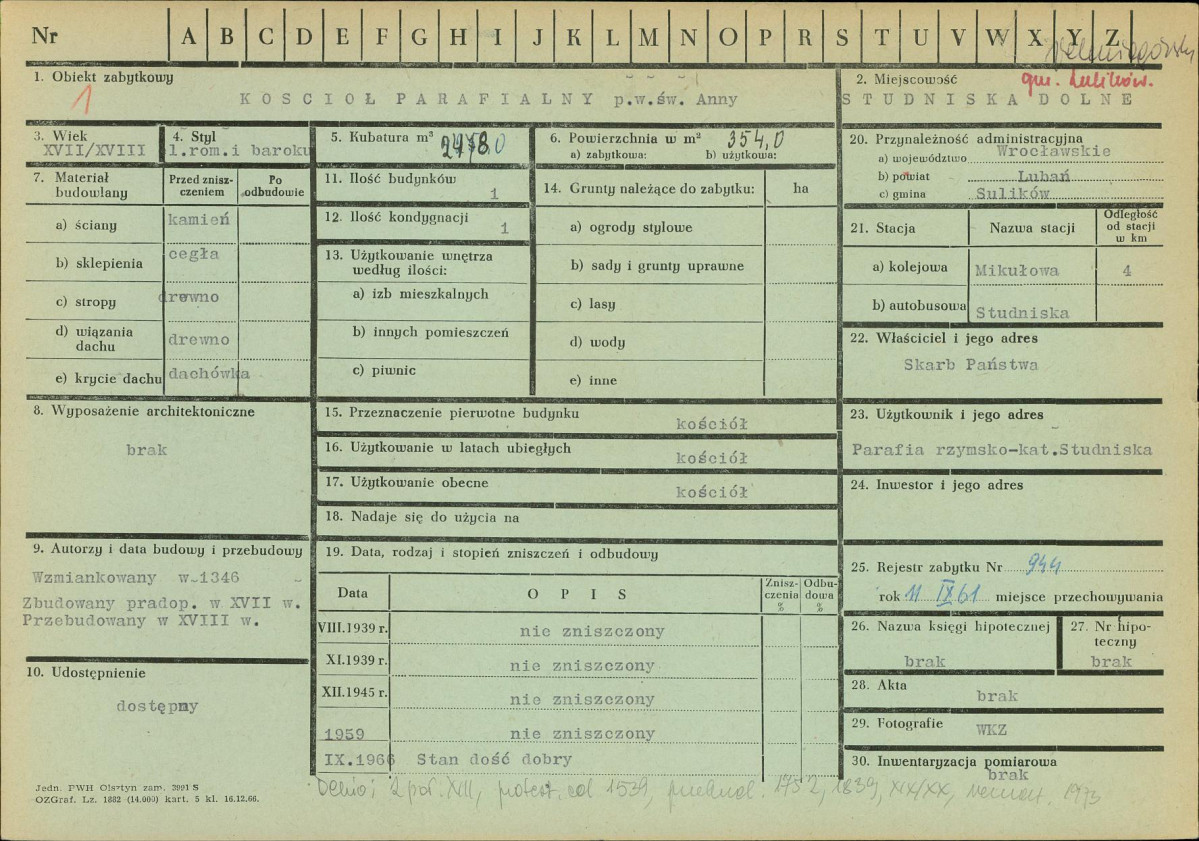 Nr A B C D E F G H I J K L M N O P R S T U V W X Y Z
1. Obiekt zabytkowy
1
KOŚCIOŁ PARAFIALNY p.w.św. Anny
2. Miejscowość
gm. Sulików.
STUDNISKA DOLNE
3. Wiek
XVII/XVIII
4. Styl
l.rom.i baroku
5. Kubatura m³
6. Powierzchnia w m² 354,0
a) zabytkowa: b) użytkowa:
7. Materiał budowlany
Przed zniszczeniem
Po odbudowie
a) ściany kamień
b) sklepienia cegła
c) stropy drewno
d) wiązania dachu drewno
e) krycie dachu dachówka
8. Wyposażenie architektoniczne
brak
9. Autorzy i data budowy i przebudowy
Wzmiankowany w 1346
Zbudowany pradop. w XVII w.
Przebudowany w XVIII w.
10. Udostępnienie
dostępny
11. Ilość budynków
1
12. Ilość kondygnacji
1
13. Użytkowanie wnętrza
według ilości:
a) izb mieszkalnych
b) innych pomieszczeń
c) piwnic
14. Grunty należące do zabytku: ha
a) ogrody stylowe
b) sady i grunty uprawne
c) lasy
d) wody
e) inne
15. Przeznaczenie pierwotne budynku
kościół
16. Użytkowanie w latach ubiegłych
kościół
17. Użytkowanie obecne
kościół
18. Nadaje się do użycia na
19. Data, rodzaj i stopień zniszczeń i odbudowy
Data
OPIS
Zniszczenia %
Odbudowa %
VIII.1939 r. nie zniszczony
XI.1939 r. nie zniszczony
XII.1945 r. nie zniszczony
1959 nie zniszczony
IX.1966 Stan dość dobry
20. Przynależność administracyjna
a) województwo Wrocławskie
b) powiat Lubań
c) gmina Sulików
21. Stacja
Nazwa stacji
Odległość od stacji w km
a) kolejowa Mikułowa 4
b) autobusowa Studniska
22. Właściciel i jego adres
Skarb Państwa
23. Użytkownik i jego adres
Parafia rzymsko-kat.Studniska
24. Inwestor i jego adres
25. Rejestr zabytku Nr 944
rok 11 IX 61 miejsce przechowywania
26. Nazwa księgi hipotecznej
brak
27. Nr hipoteczny
brak
28. Akta
brak
29. Fotografie
WKZ
30. Inwentaryzacja pomiarowa
brak
2 poł. XVII, protest. od 1539, 1752, 1839, XIX/XX, remont. 1973
Jedn. PWH Olsztyn zam. 3991 S
OZGraf. Lz. 1882 (14.000) kart. 5 kl. 16.12.66.